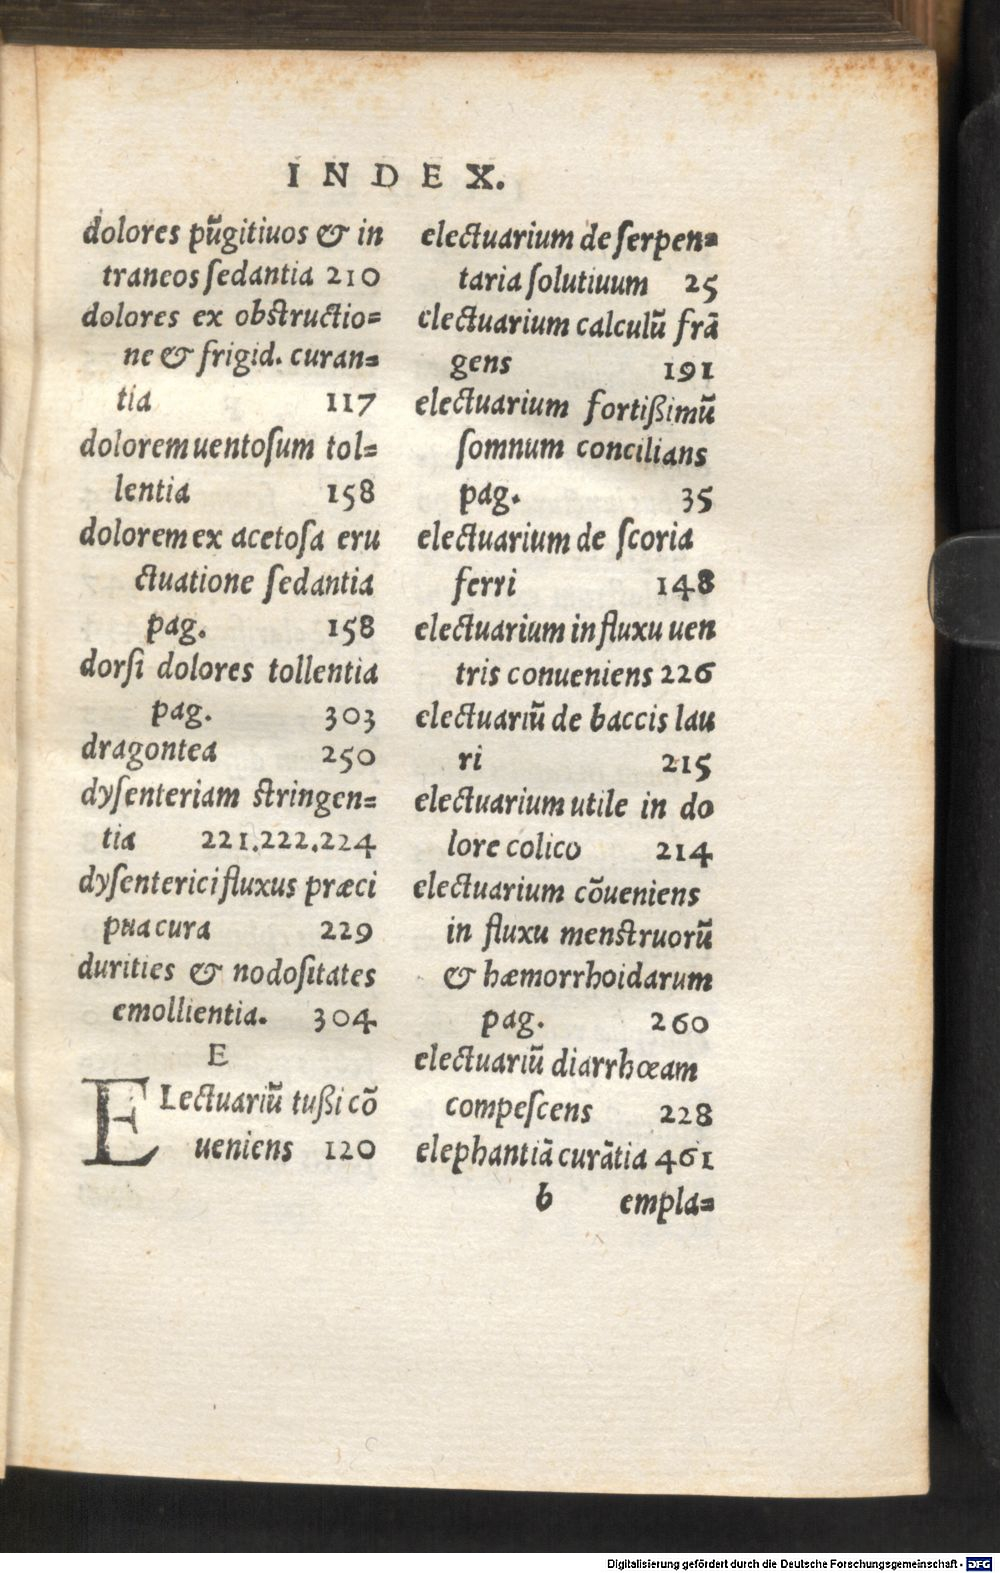 INDEX.
dolores pũgitiuos & in
traneos ſedantia 210
dolores ex obſtructio=
ne & frigid. curan=
tia 117
dolorem uentoſum tol=
lentia 158
dolorem ex acetoſa eru
ctuatione ſedantia
pag. 158
dorſi dolores tollentia
pag. 303
dragontea 250
dyſenteriam ſtringen=
tia 221.222.224
dyſenterici fluxus præci
pua cura 229
durities & nodoſitates
emollientia. 304
E
ELectuariũ tußi cõ
ueniens 120
electuarium de ſerpen=
taria ſolutiuum 25
electuarium calculũ frã
gens 191
electuarium fortißimũ
ſomnum concilians
pag. 35
electuarium de ſcoria
ferri 148
electuarium in fluxu uen
tris conueniens 226
electuariũ de baccis lau
ri 215
electuarium utile in do
lore colico 214
electuarium cõueniens
in fluxu menſtruorũ
& hæmorrhoidarum
pag. 260
electuariũ diarrhœam
compeſcens 228
elephantiã curãtia 461
b empla=
Digitalisierung gefördert durch die Deutsche Forschungsgemeinschaft - DFG